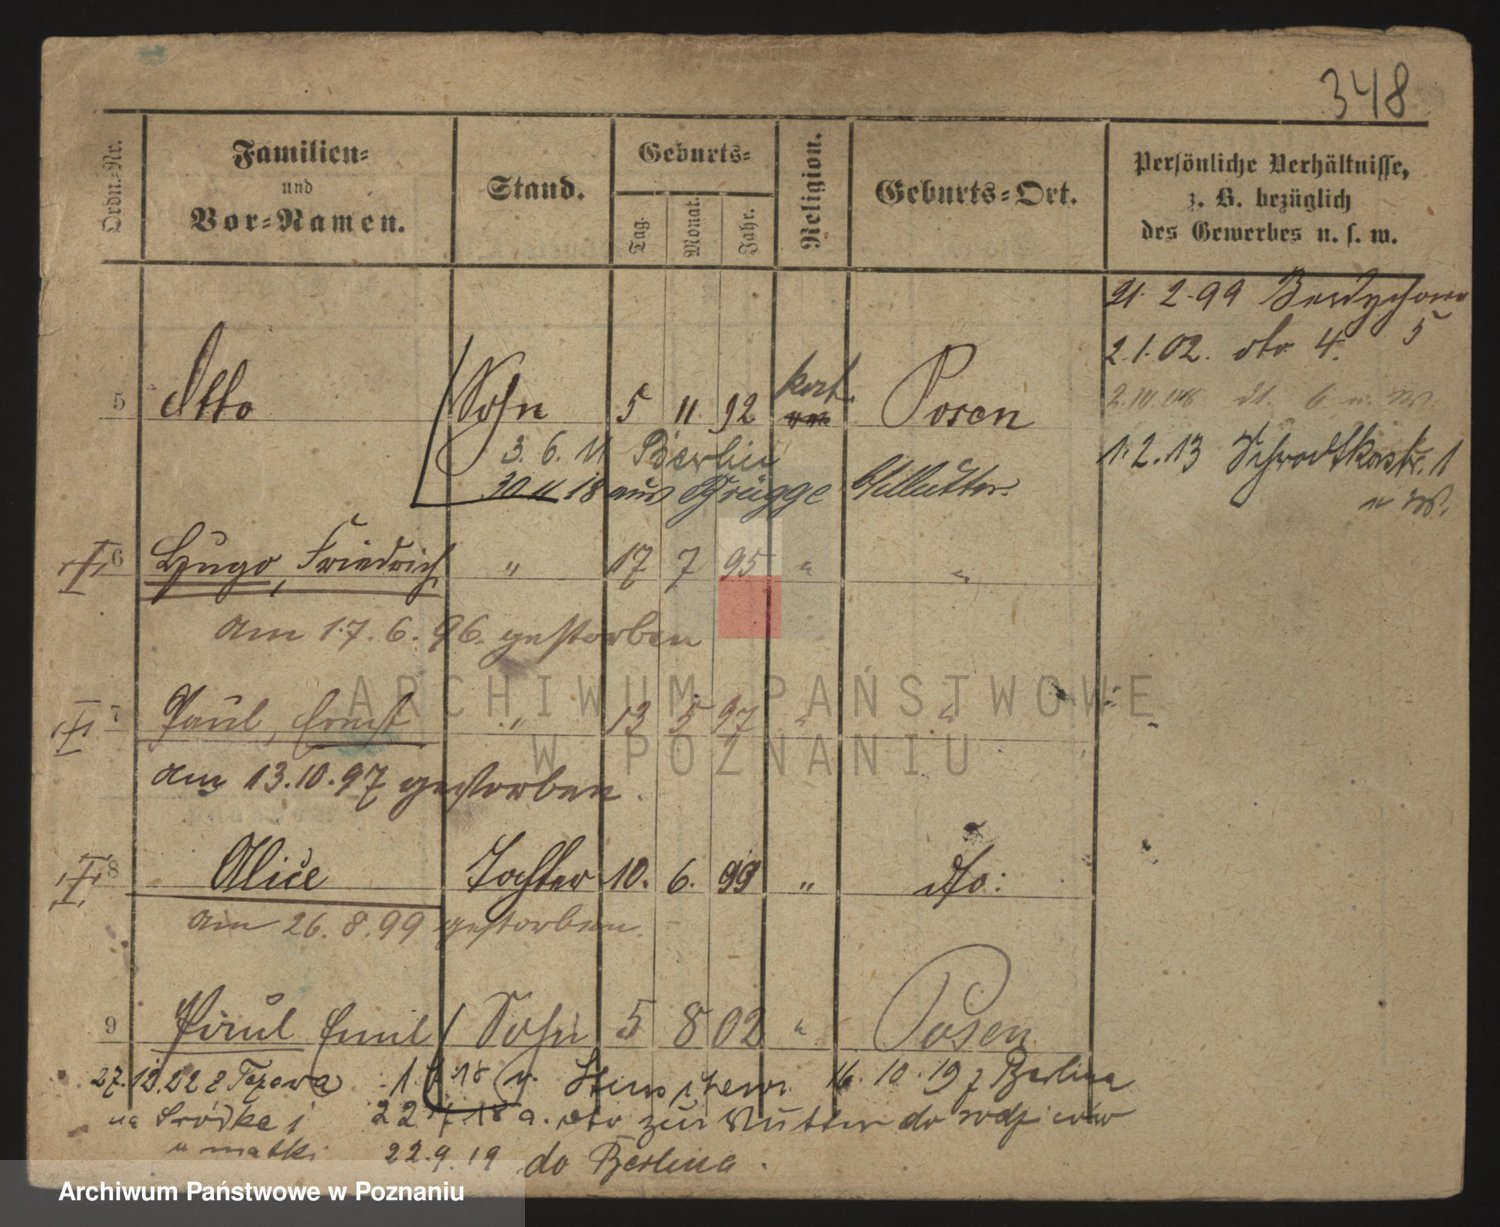 348
Ordn.-Nr.
Familien-
und
Vor-Namen.
Stand.
Geburts-
Tag.
Monat.
Jahr.
Religion.
Geburts-Ort.
Persönliche Verhältnisse,
z. B. bezüglich
des Gewerbes u. s. w.
21.2.99 Berdychowo
5
2.1.02. dto 4.
5 Otto Sohn 5 11. 92 kath. Posen
1.2.13 Schrodkastr. 1
3.6.11 Berlin
30 11 18 aus Brügge
6 Hugo, Friedrich " 17 7 95 " "
am 17.6.96. gestorben
ARCHIWUM PAŃSTWOWE
W POZNANIU
7 Paul, Ernst " 13 5 97 " "
am 13.10.97 gestorben.
8 Alice Tochter 10. 6. 99 " dto:
am 26.8.99 gestorben.
9 Paul Emil Sohn 5 8 02 " Posen
27.12.22 z 18 v. 16.10.19 z Berlina
na Śródkę 18 a. dto zur Mutter do rodziców
u matki 22.9.19 do Berlina.
Archiwum Państwowe w Poznaniu